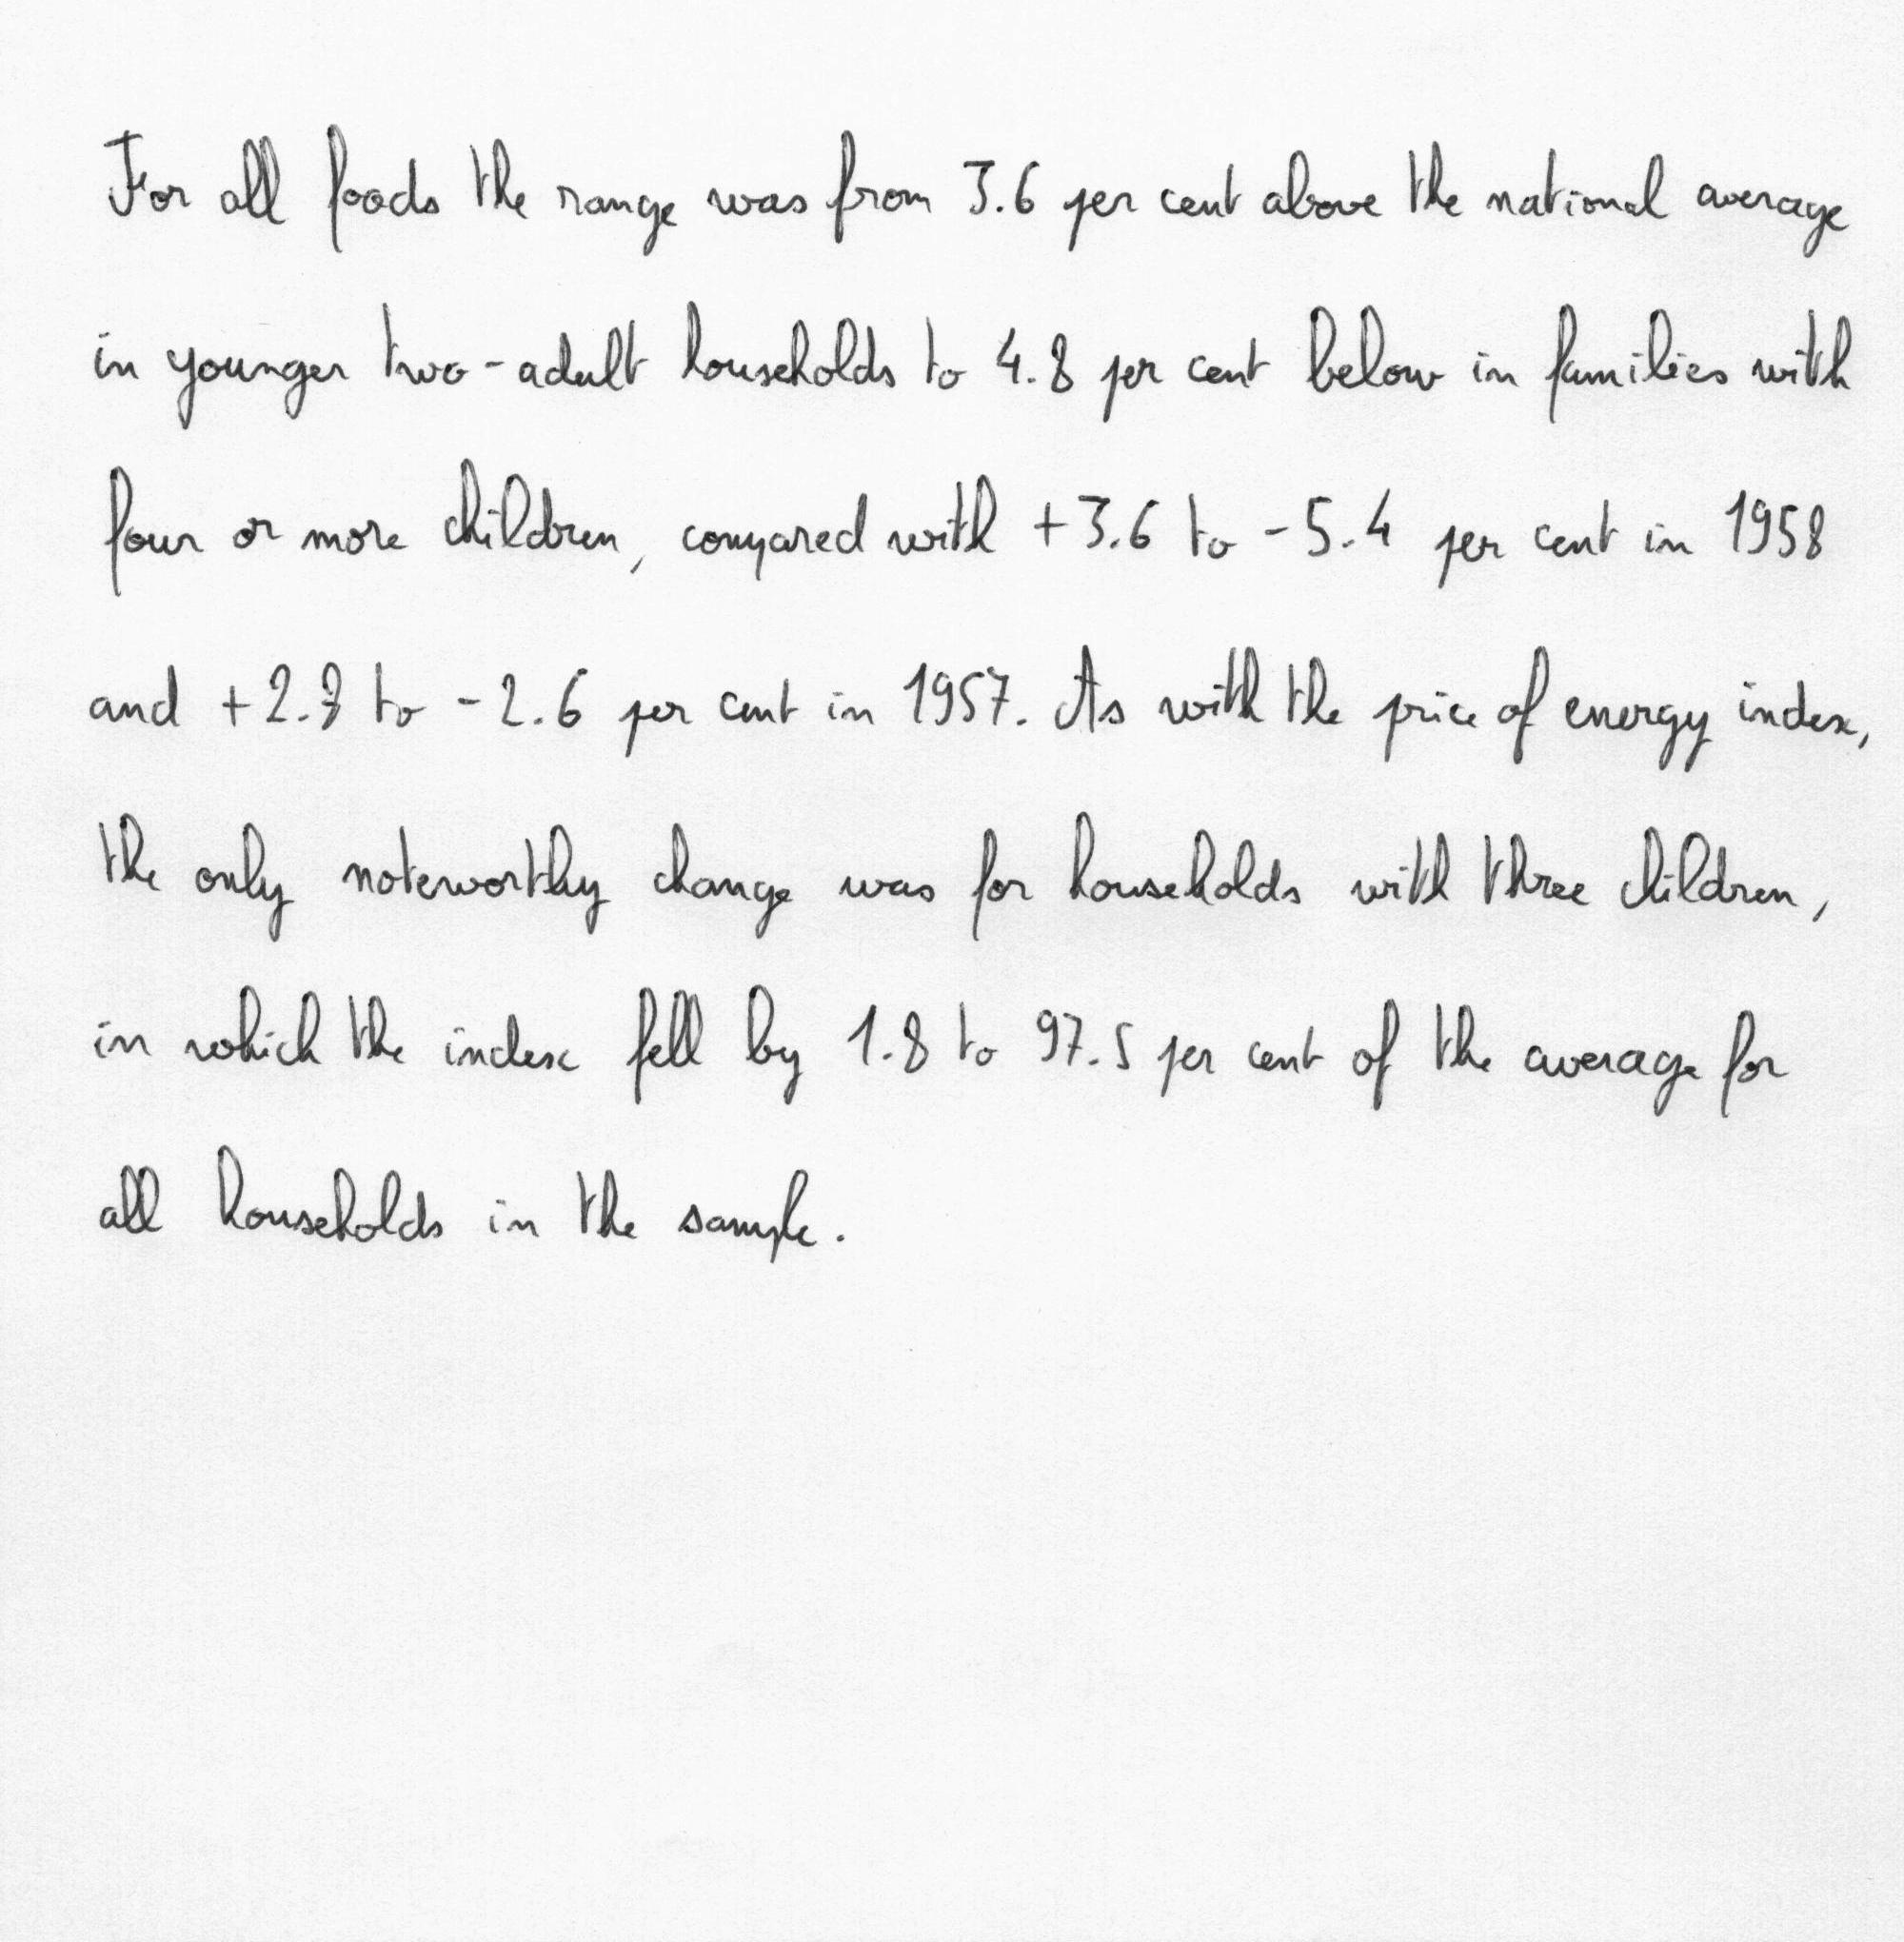 For all foods the range was from 3.6 per cent above the national average
in younger two-adult households to 4.8 per cent below in families with
four or more children, compared with +3.6 to -5.4 per cent in 1958
and +2.8 to -2.6 per cent in 1957. As with the price of energy index,
the only noteworthy change was for households with three children,
in which the index fell by 1.8 to 97.5 per cent of the average for
all households in the sample.